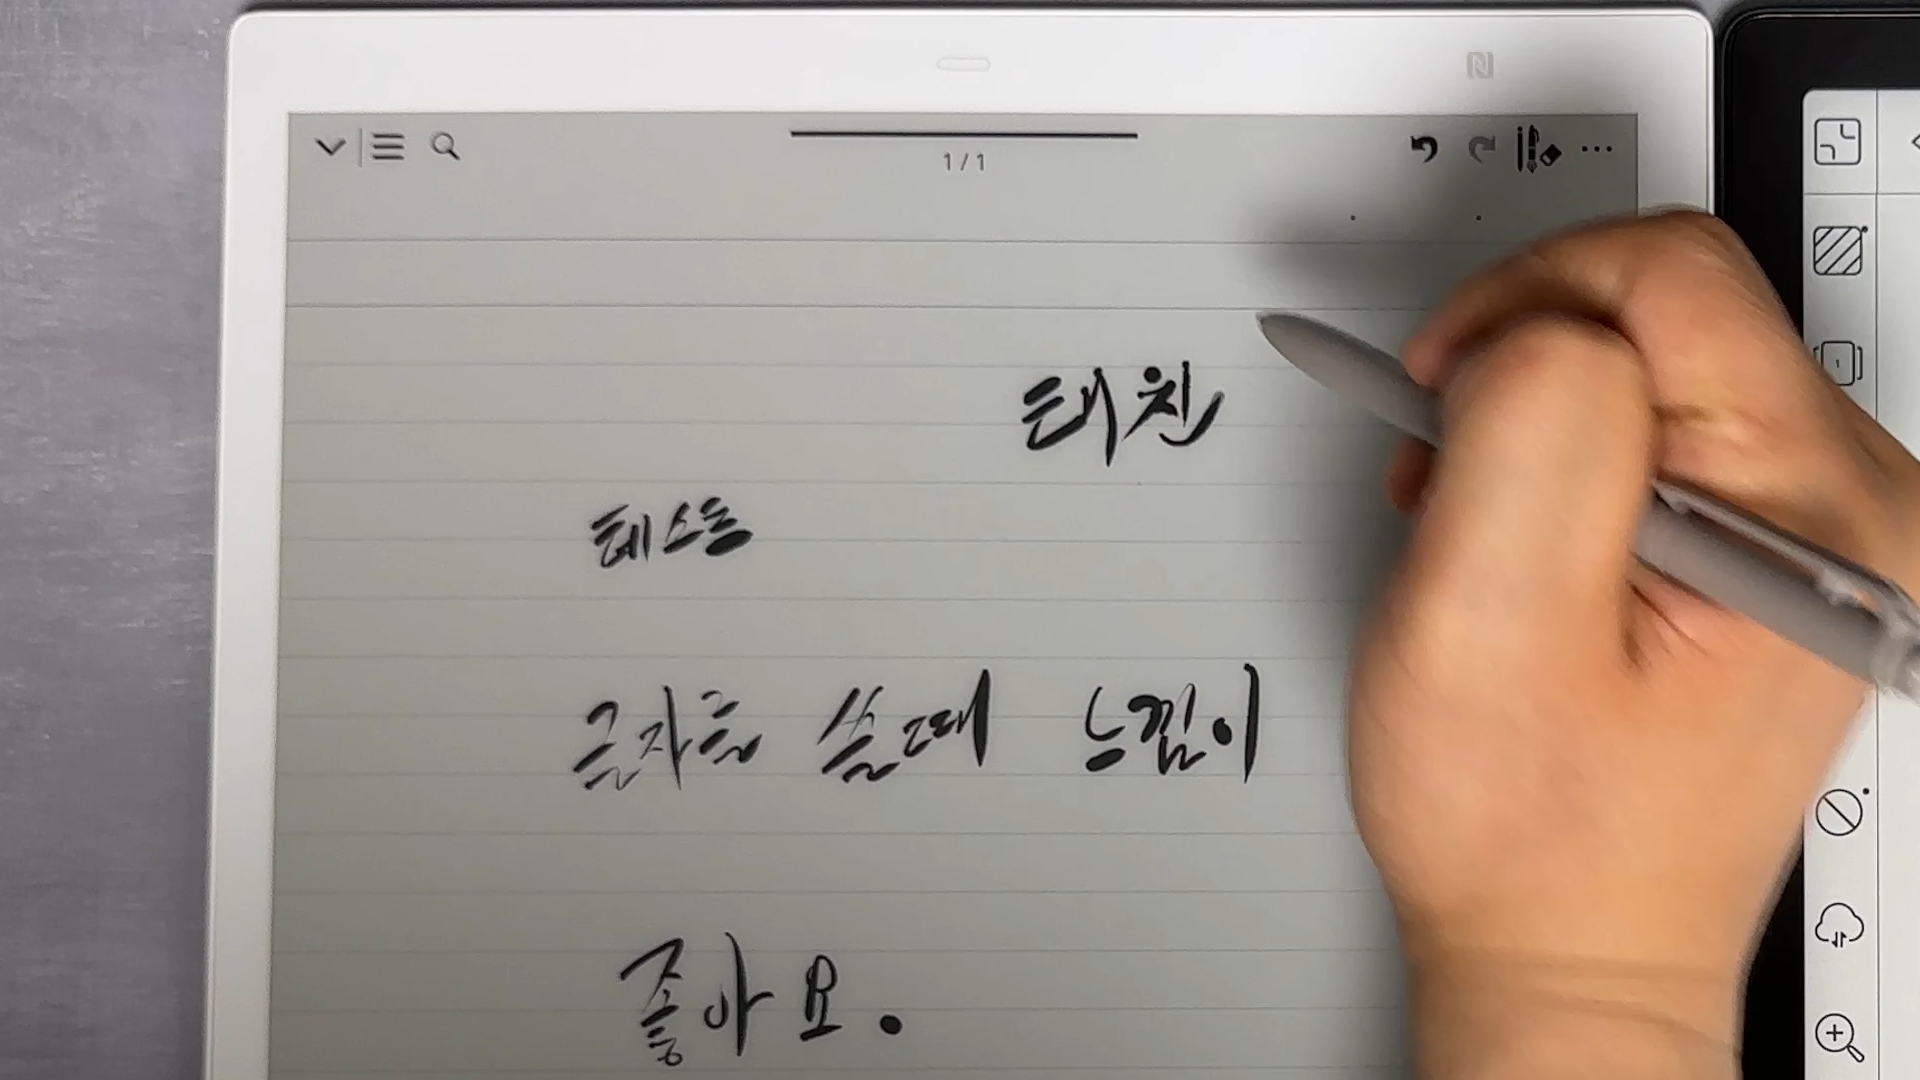 1 / 1
태친
테스트
글자를 쓸때 느낌이
좋아요.